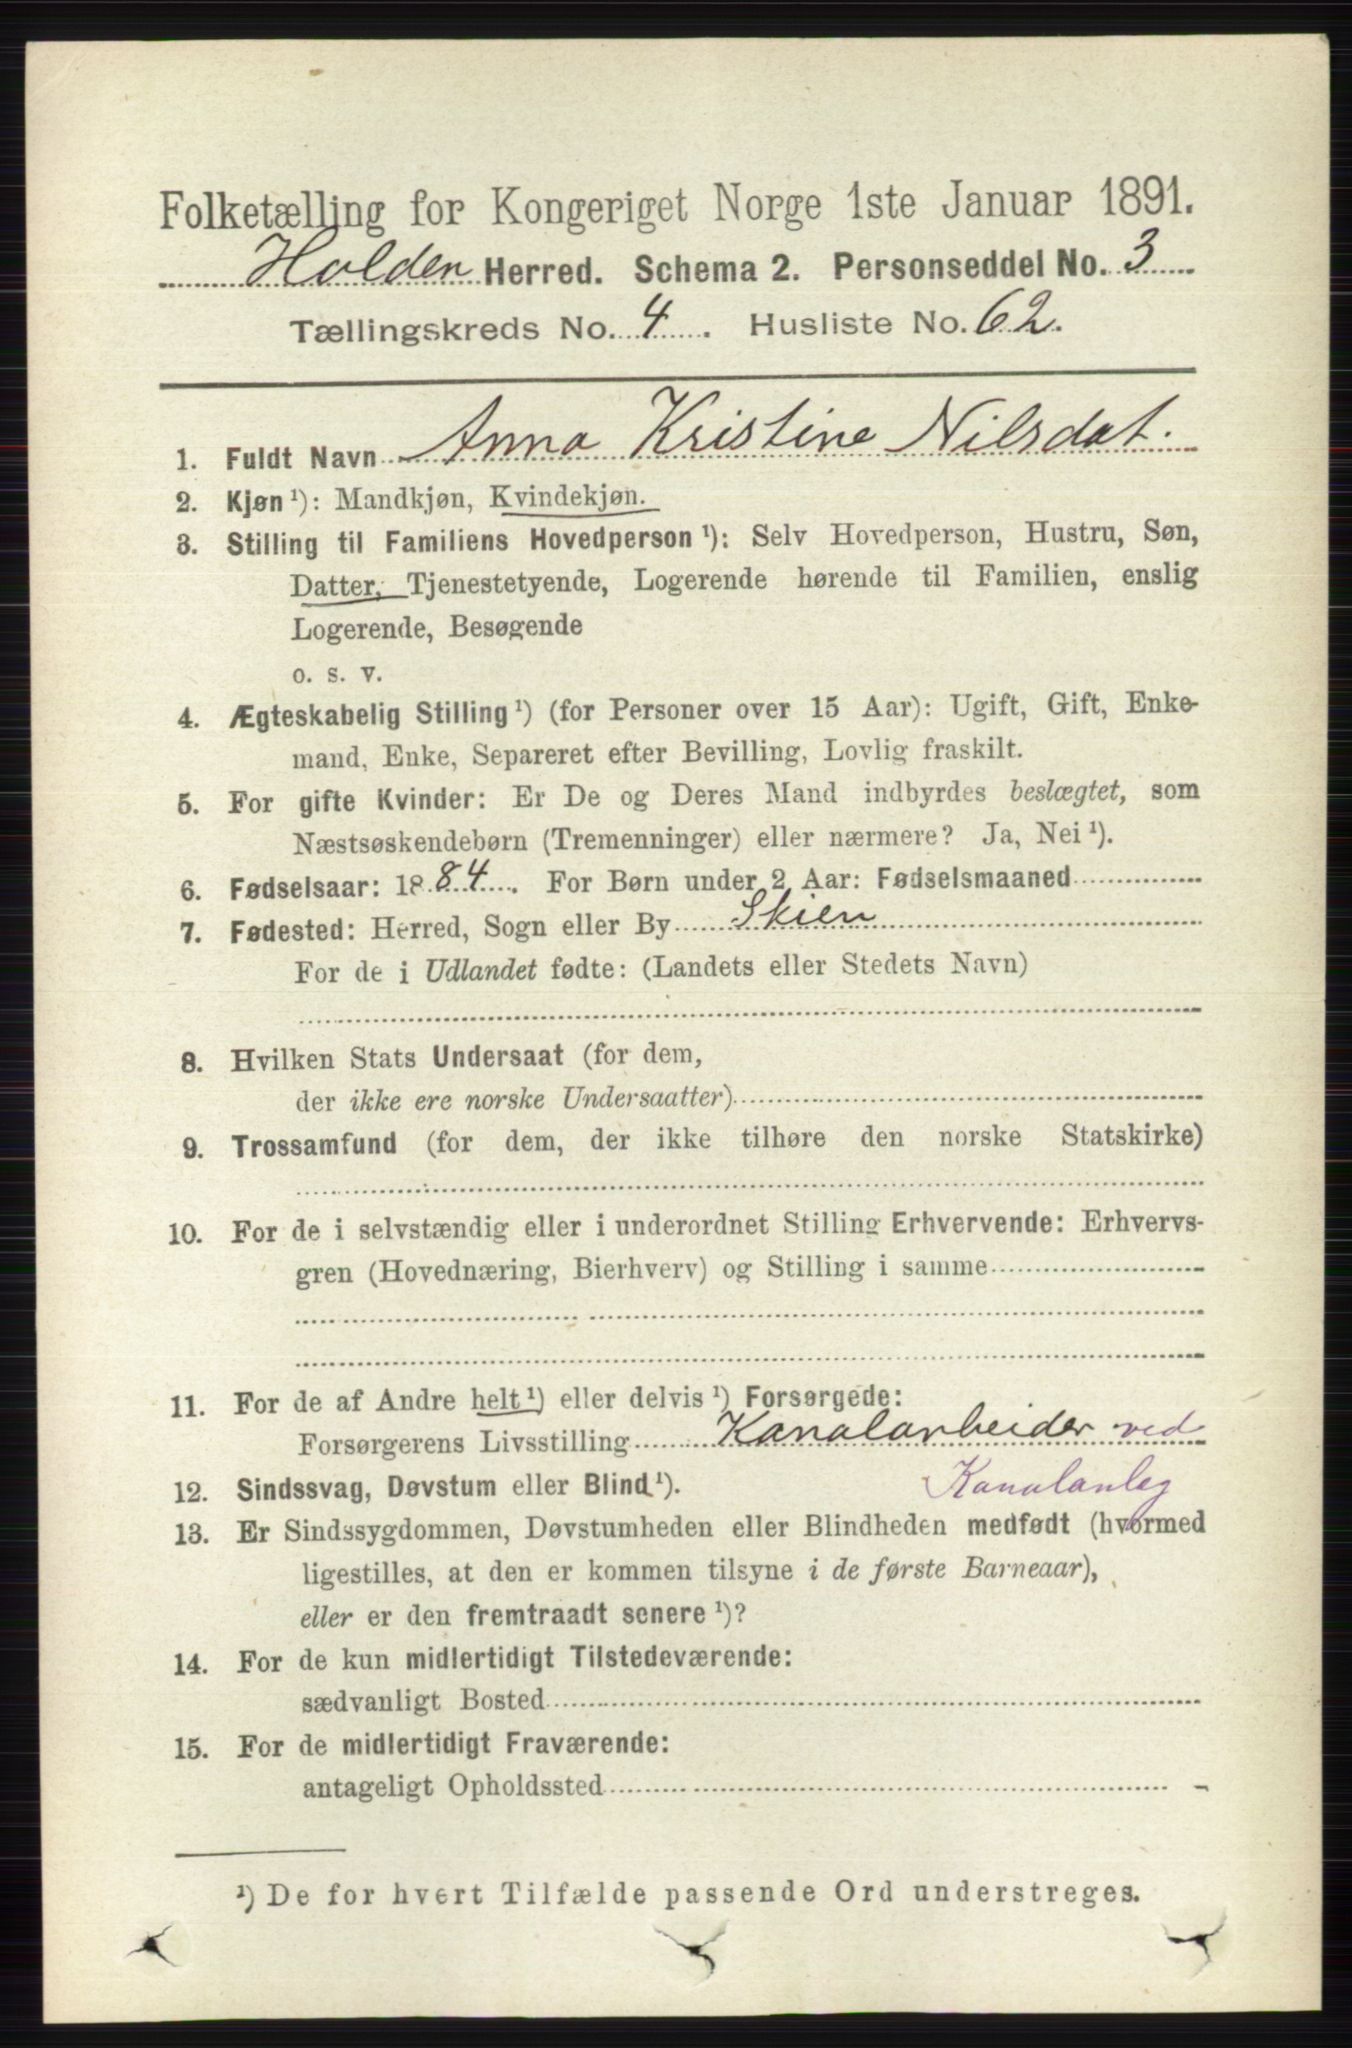 Folketælling for Kongeriget Norge 1ste Januar 1891.
Holden Herred. Schema 2. Personseddel No. 3
Tællingskreds No. 4. Husliste No. 62.
1. Fuldt Navn Anna Kristine Nilsdat.
2. Kjøn ¹): Mandkjøn, Kvindekjøn.
3. Stilling til Familiens Hovedperson ¹): Selv Hovedperson, Hustru, Søn,
Datter, Tjenestetyende, Logerende hørende til Familien, enslig
Logerende, Besøgende
o. s. v.
4. Ægteskabelig Stilling ¹) (for Personer over 15 Aar): Ugift, Gift, Enke-
mand, Enke, Separeret efter Bevilling, Lovlig fraskilt.
5. For gifte Kvinder: Er De og Deres Mand indbyrdes beslægtet, som
Næstsøskendebørn (Tremenninger) eller nærmere? Ja, Nei ¹).
6. Fødselsaar: 1884. For Børn under 2 Aar: Fødselsmaaned
7. Fødested: Herred, Sogn eller By Skien
For de i Udlandet fødte: (Landets eller Stedets Navn)
8. Hvilken Stats Undersaat (for dem,
der ikke ere norske Undersaatter)
9. Trossamfund (for dem, der ikke tilhøre den norske Statskirke)
10. For de i selvstændig eller i underordnet Stilling Erhvervende: Erhvervs-
gren (Hovednæring, Bierhverv) og Stilling i samme
11. For de af Andre helt ¹) eller delvis ¹) Forsørgede:
Forsørgerens Livsstilling Kanalarbeider ved
Kanalanlæg
12. Sindssvag, Døvstum eller Blind ¹).
13. Er Sindssygdommen, Døvstumheden eller Blindheden medfødt (hvormed
ligestilles, at den er kommen tilsyne i de første Barneaar),
eller er den fremtraadt senere ¹)?
14. For de kun midlertidigt Tilstedeværende:
sædvanligt Bosted
15. For de midlertidigt Fraværende:
antageligt Opholdssted
¹) De for hvert Tilfælde passende Ord understreges.